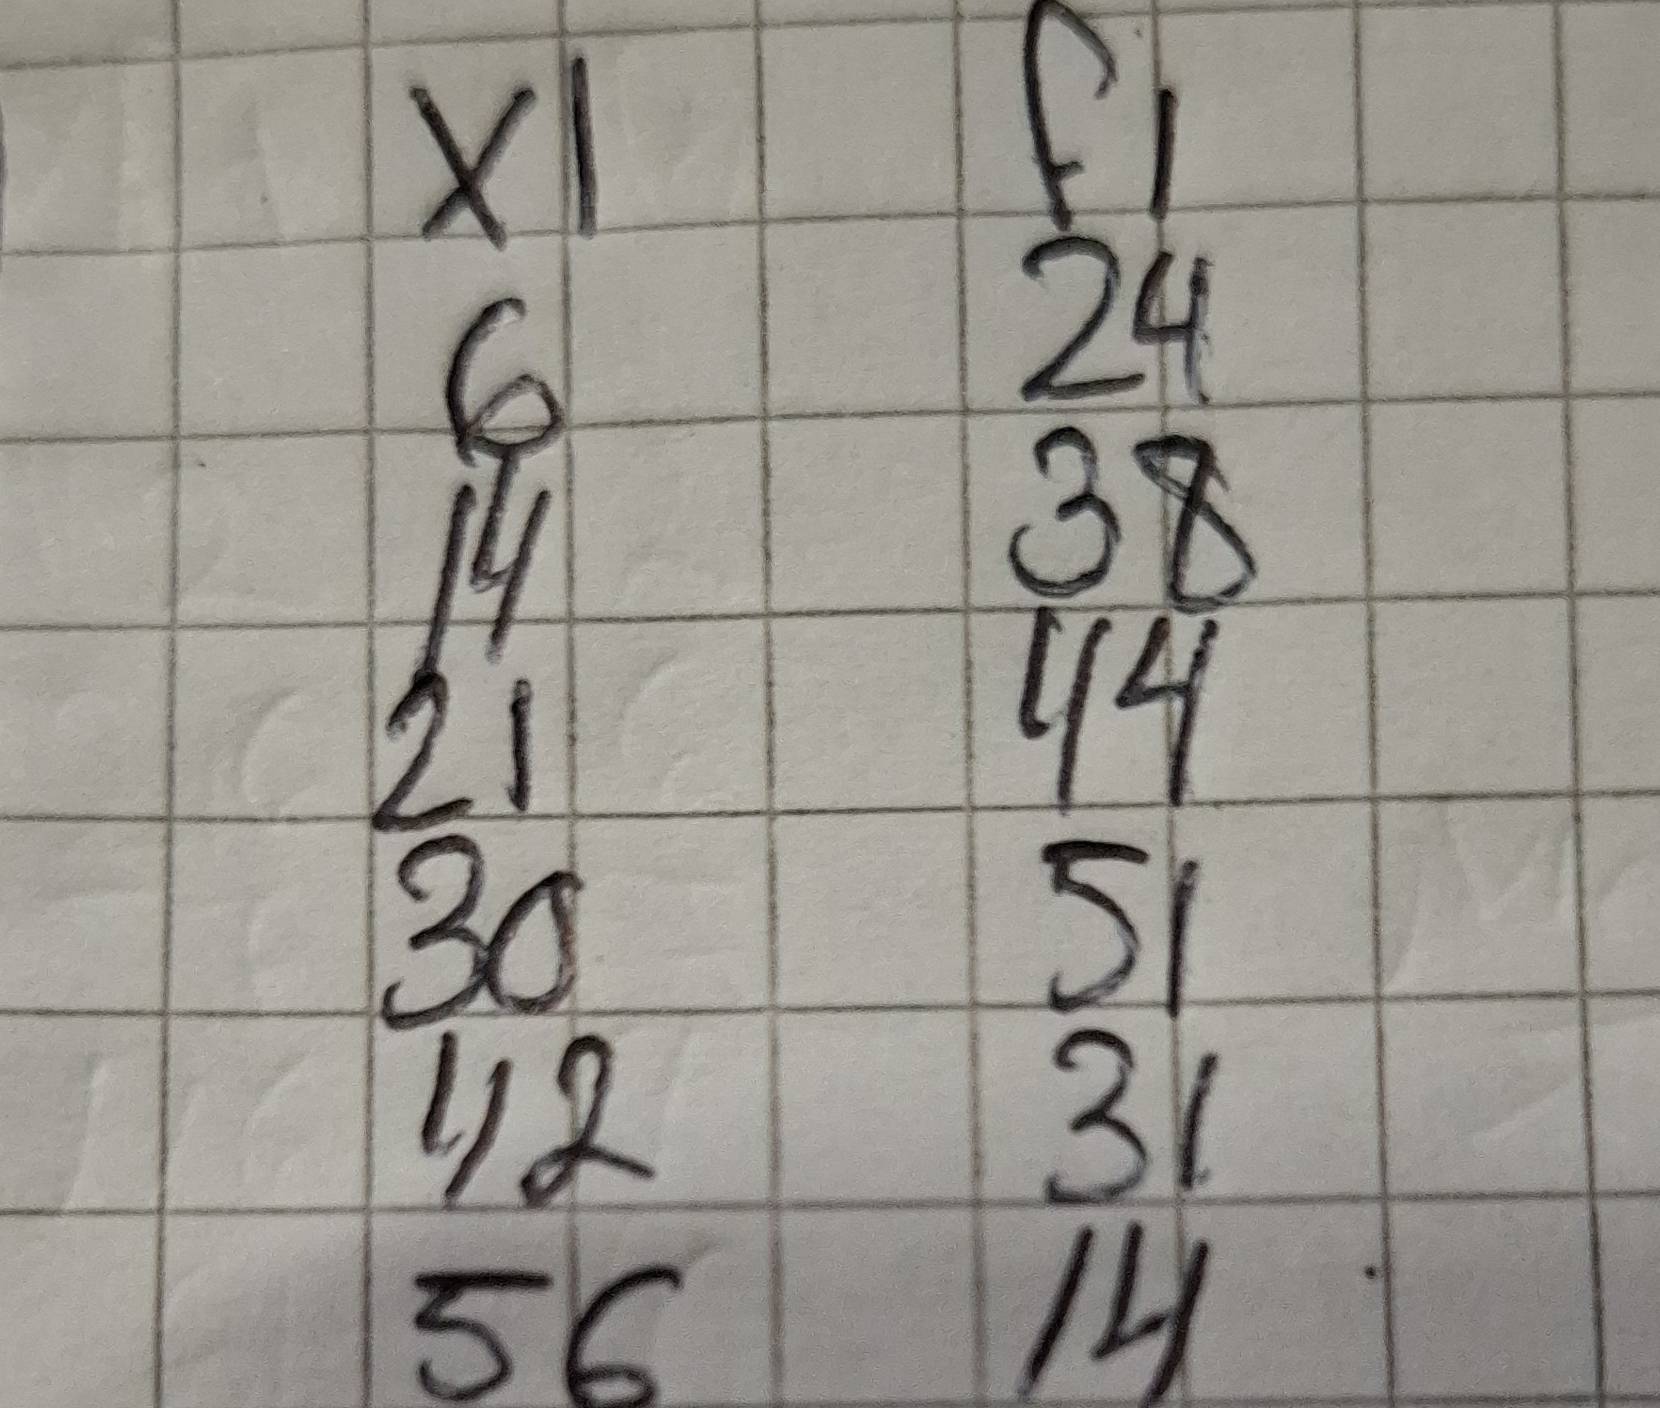 x1 f1
6 24
14 38
21 44
30 51
42 31
56 14